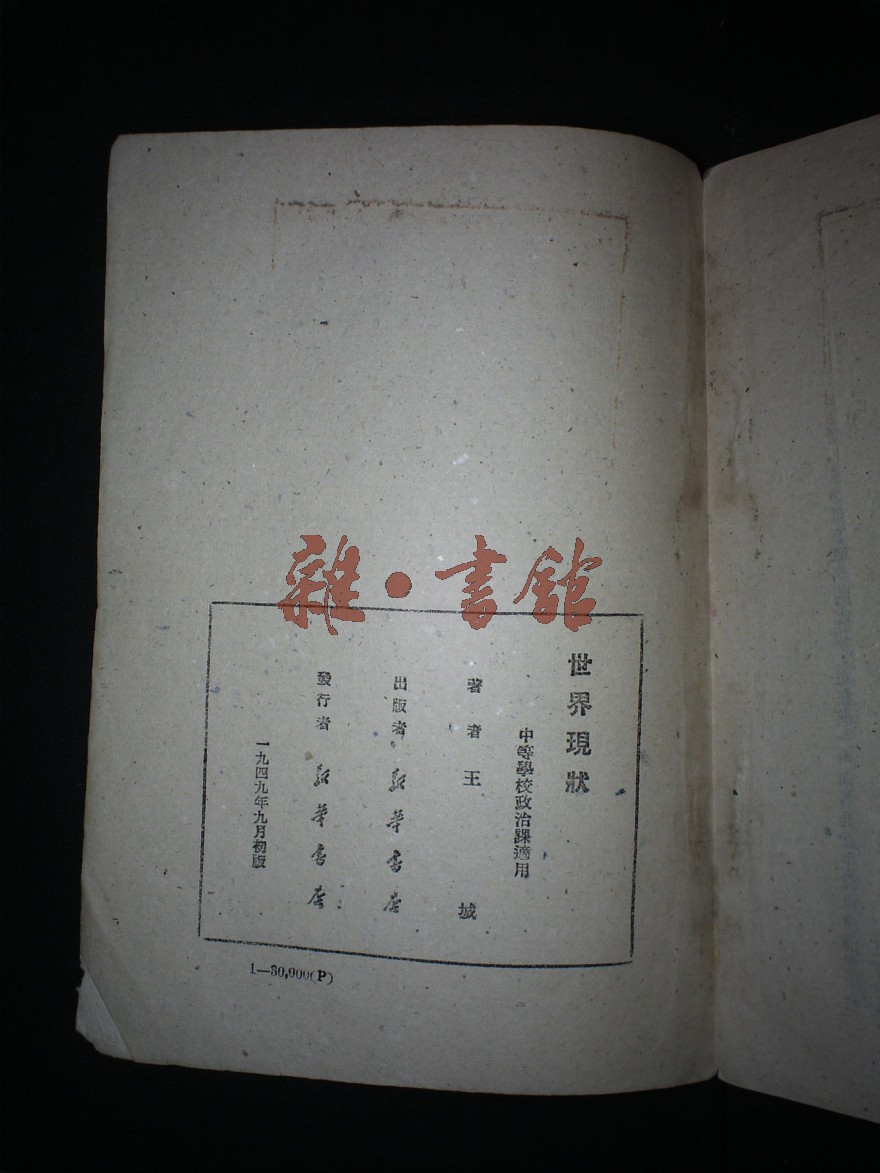 雜·書館
世界現狀
中等學校政治課適用
著者 王城
出版者 新華書店
發行者 新華書店
一九四九年九月初版
1—30,000(P)